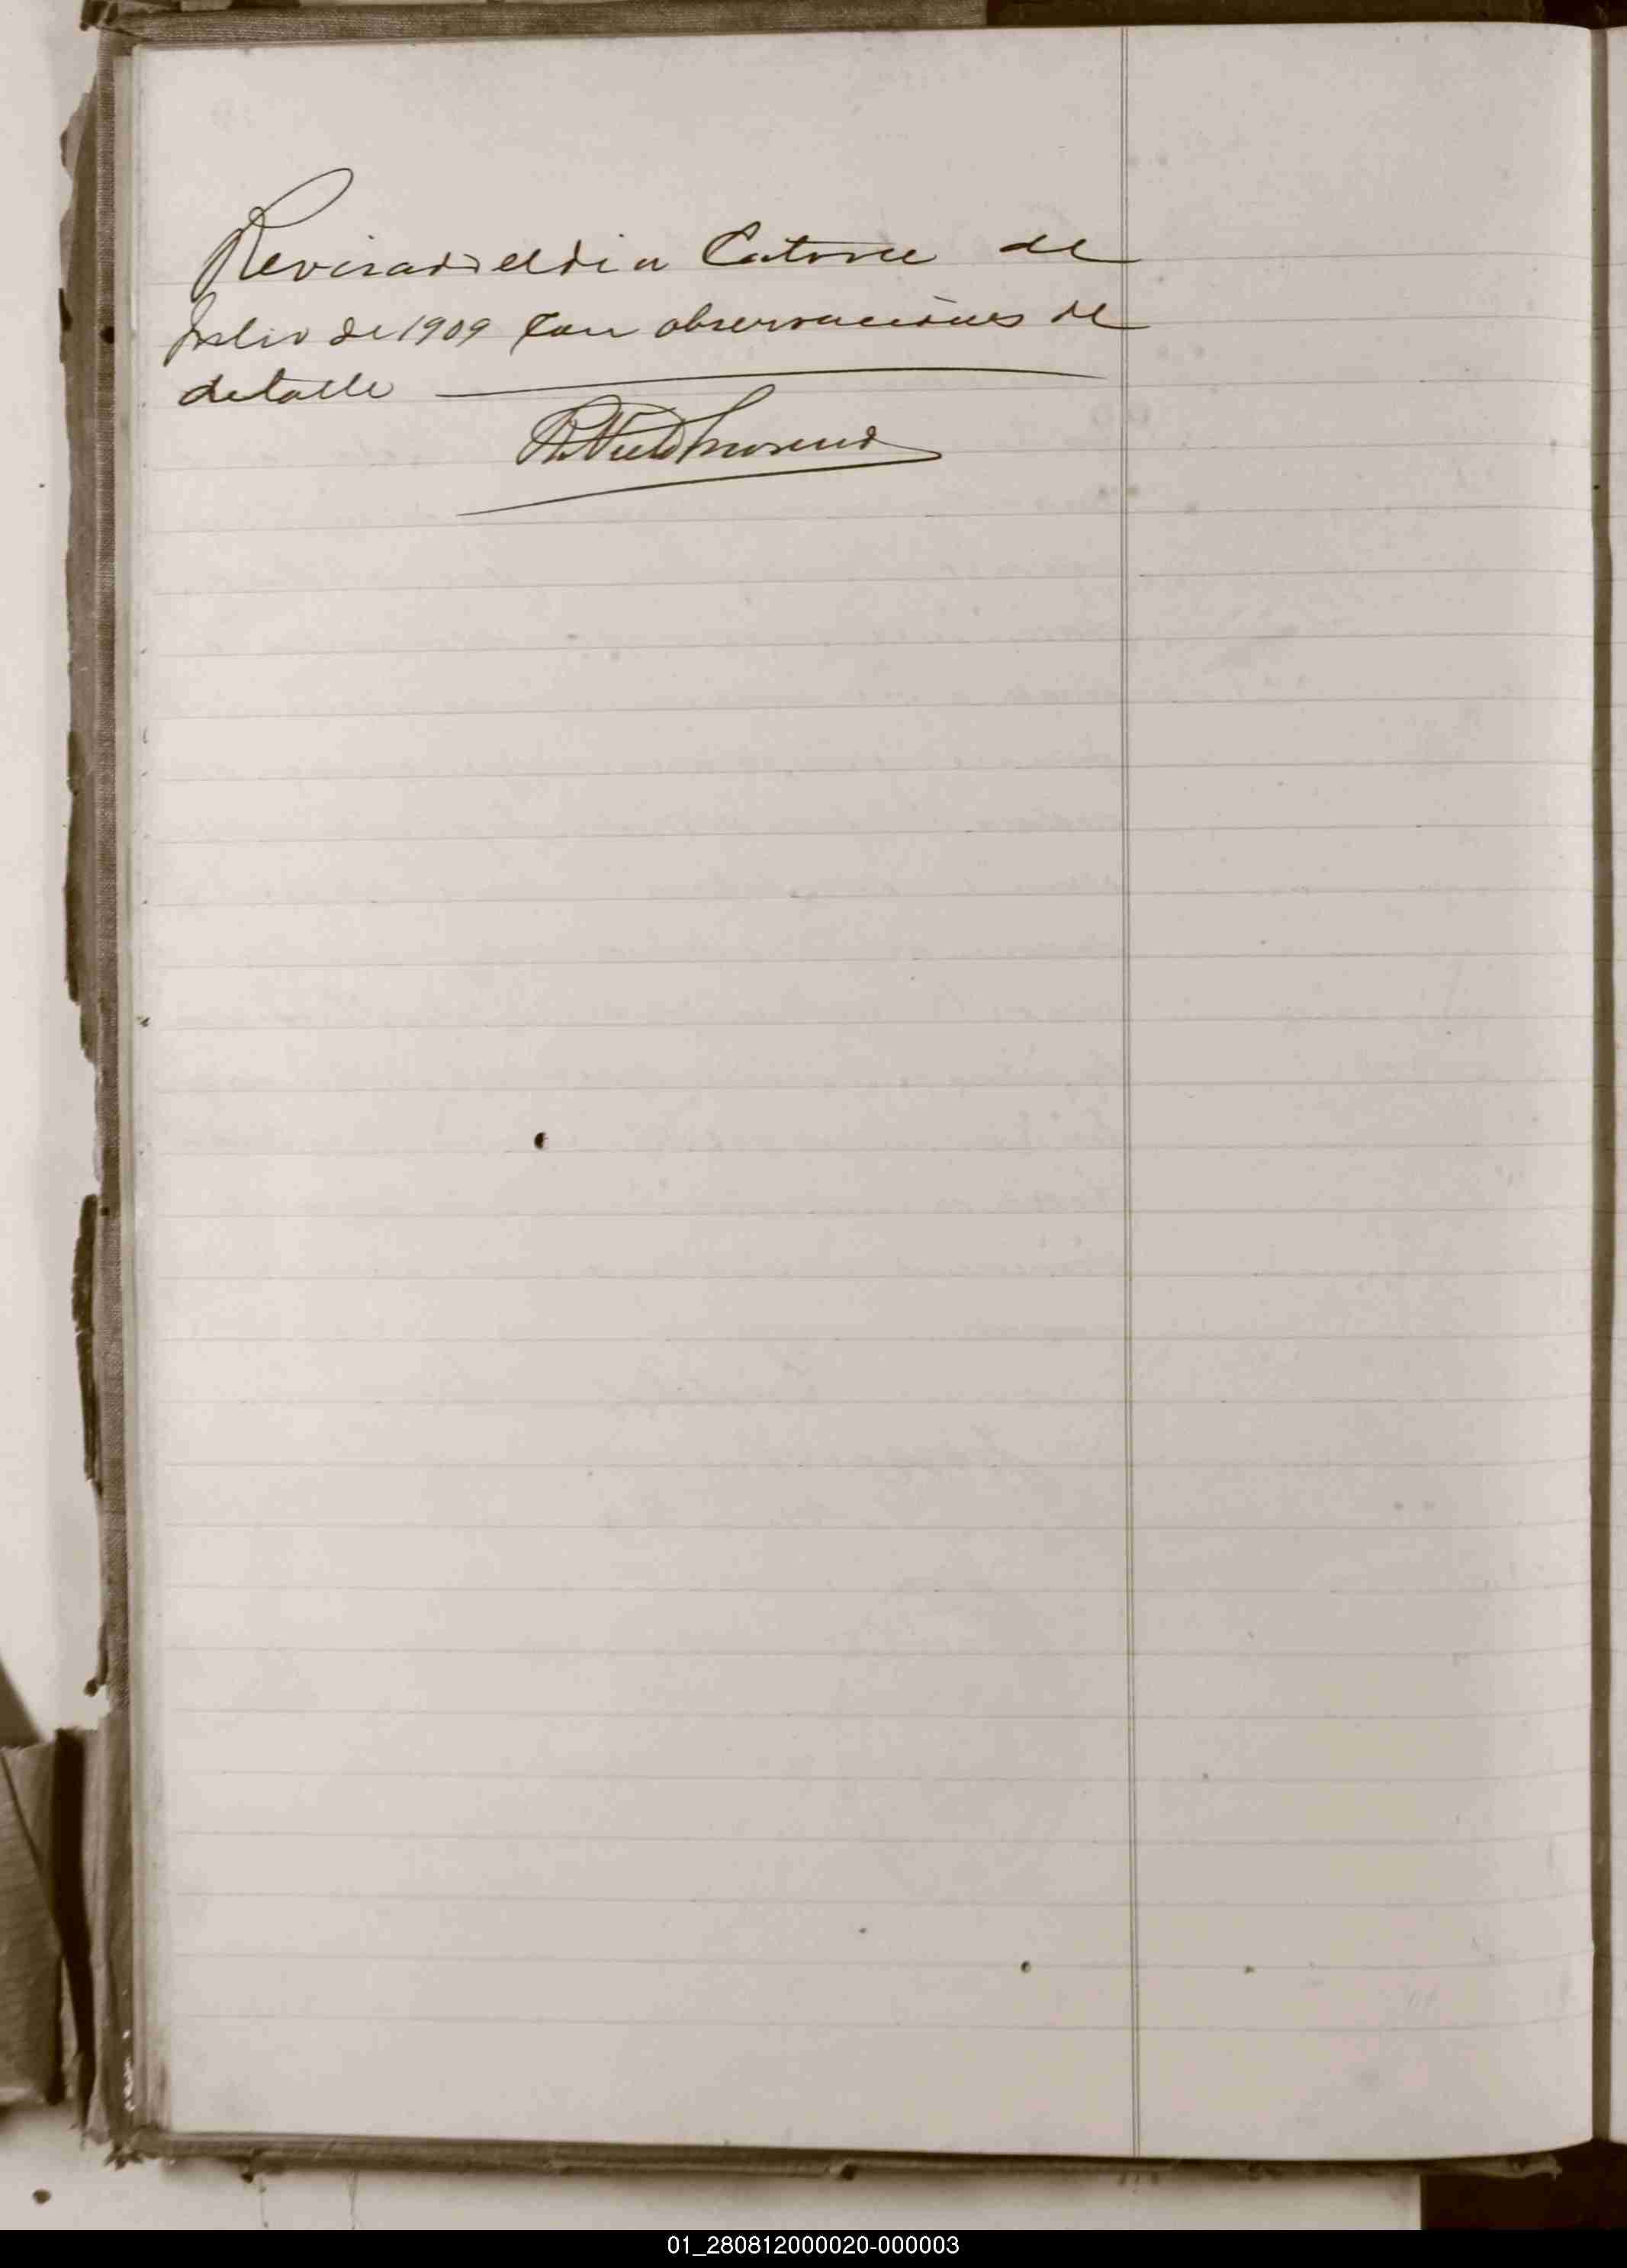 Revisado el dia Catorce de
Julio de 1909 con observaciones de
detalle
R. Nieto Moreno
01_280812000020-000003